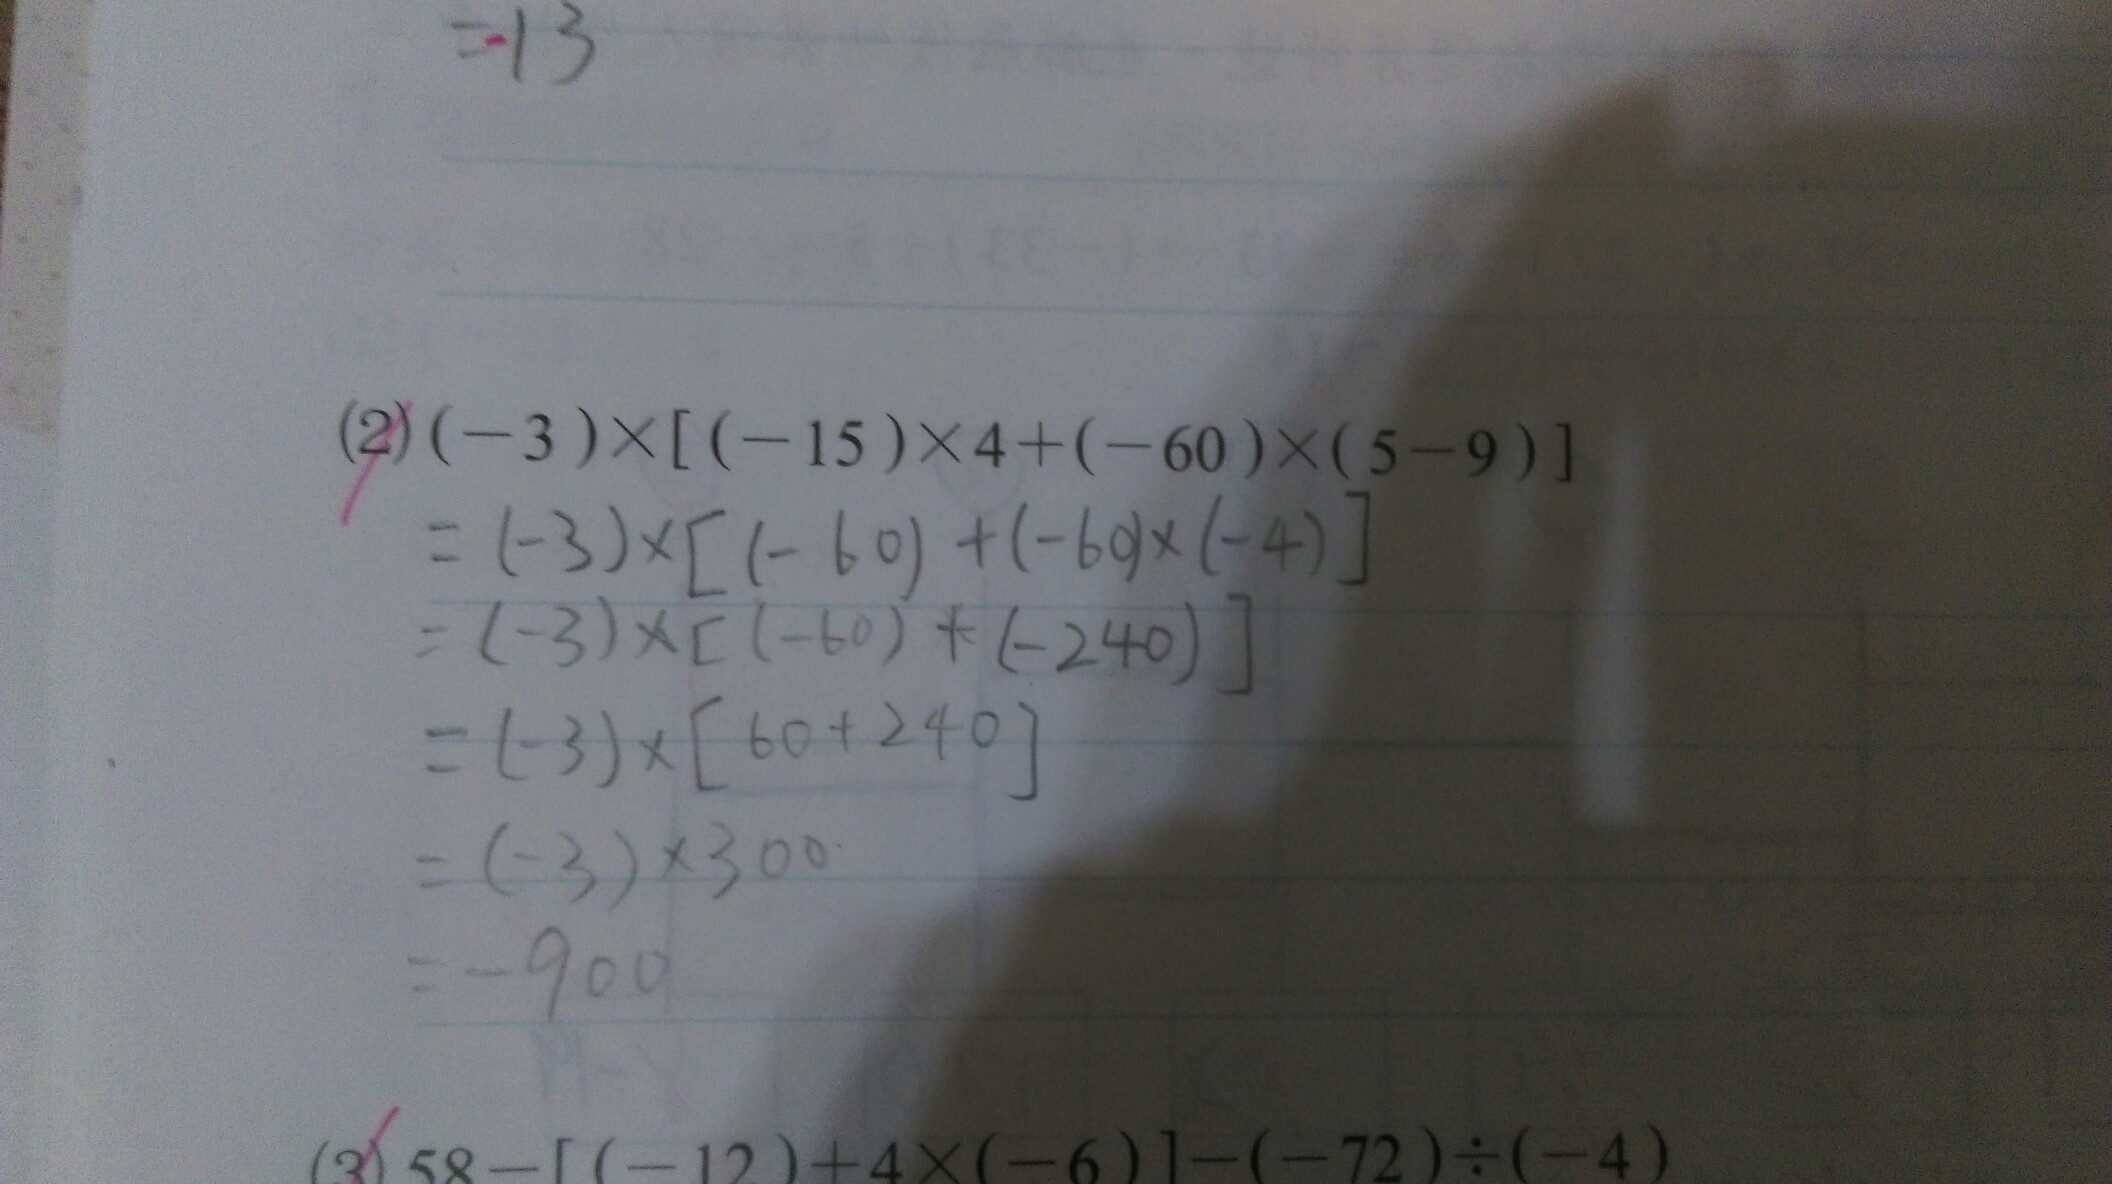 =-13
(2)(-3)×[(-15)×4+(-60)×(5-9)]
=(-3)×[(-60)+(-60)×(-4)]
=(-3)×[(-60)+(-240)]
=(-3)×[60+240]
=(-3)×300
=-900
(3)58-[(-12)+4×(-6)]-(-72)÷(-4)